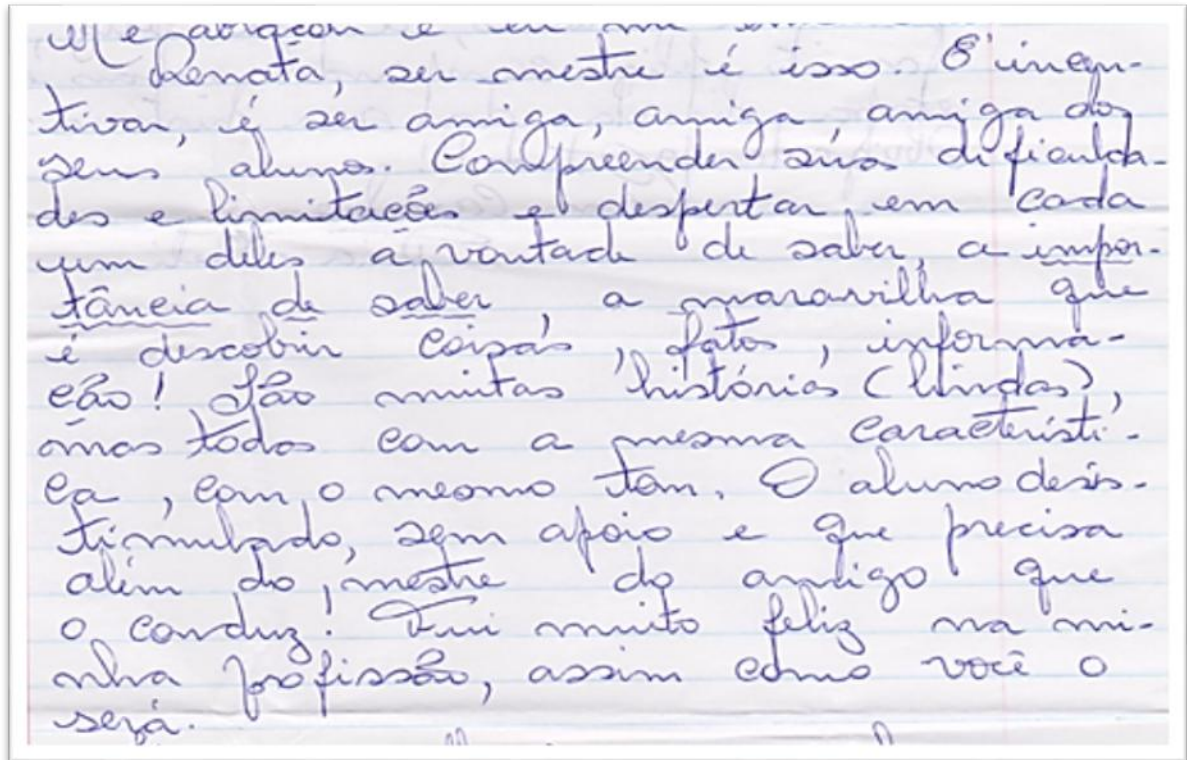 Me abraçou e eu me
Renata, ser mestre é isso. É incen-
tivar, é ser amiga, amiga, amiga dos
seus alunos. Compreender suas dificulda-
des e limitações e despertar em cada
um deles a vontade de saber, a impor-
tância de saber a maravilha que
é descobrir coisas, fatos, informa-
ção! São muitas histórias (lindas),
mas todas com a mesma característi-
ca, com o mesmo tom. O aluno deses-
timulado, sem apoio e que precisa
além do mestre do amigo que
o conduz! Fui muito feliz na mi-
nha profissão, assim como você o
será.